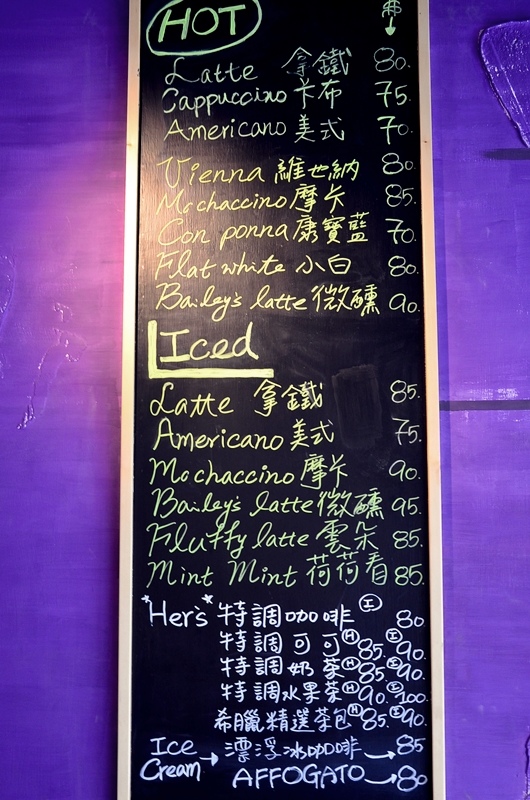 HOT $
Latte 拿鐵 80.
Cappuccino 卡布 75.
Americano 美式 70.
Vienna 維也納 80.
Mochaccino 摩卡 85.
Con ponna 康寶藍 70.
Flat white 小白 80.
Bailey's latte 微醺 90.
Iced
Latte 拿鐵 85.
Americano 美式 75.
Mochaccino 摩卡 90.
Bailey's latte 微醺 95.
Fluffy latte 雲朵 85.
Mint Mint 荷荷看 85.
*Her's* 特調咖啡 Ⓘ 80
特調可可 Ⓗ85. Ⓘ90.
特調奶茶 Ⓗ85. Ⓘ90.
特調水果茶 Ⓗ90. Ⓘ100.
希臘精選茶包 Ⓗ85. Ⓘ90.
Ice Cream → 漂浮冰咖啡 → 85
AFFOGATO → 80